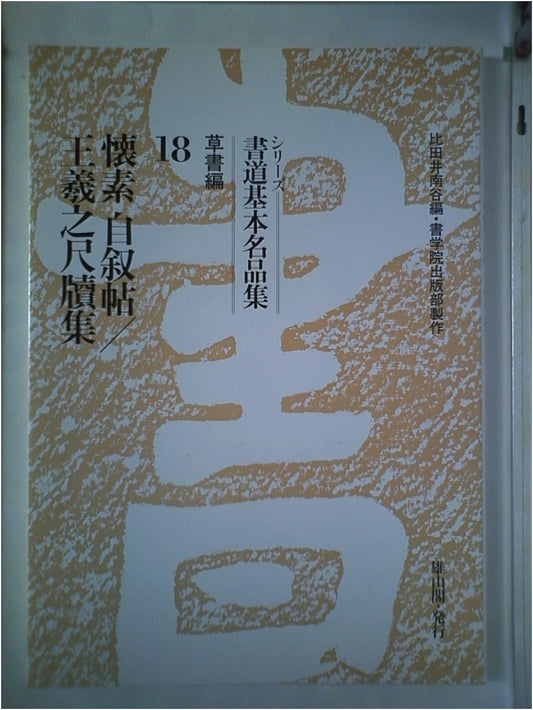 比田井南谷編・書学院出版部製作
シリーズ
書道基本名品集
草書編
18
懐素 自叙帖／
王羲之尺牘集
雄山閣・発行
書